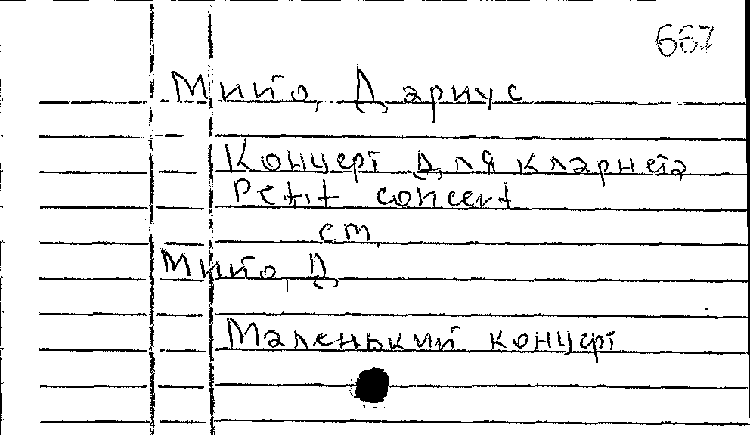 667
Мийо, Дариус
Концерт для кларнета
Petit concert
см.
Мийо, Д.
Маленький концерт